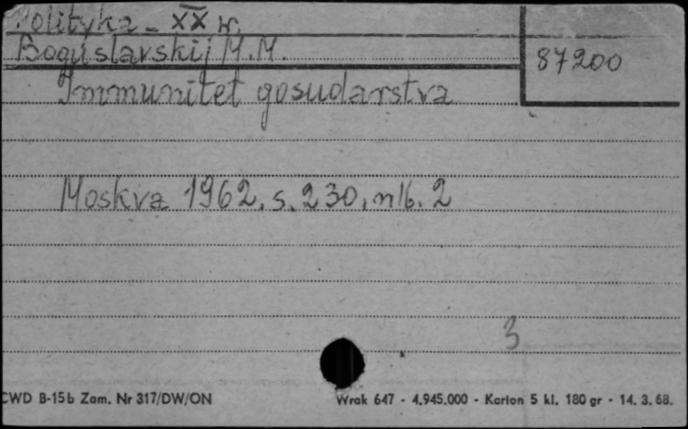 Polityka - XX w.
Boguslavskij M.M.
87200
Immunitet gosudarstva
Moskva 1962, s. 230, nlb. 2
3
CWD B-15b Zam. Nr 317/DW/ON
Wrak 647 - 4.945.000 - Karton 5 kl. 180 gr - 14. 3. 68.